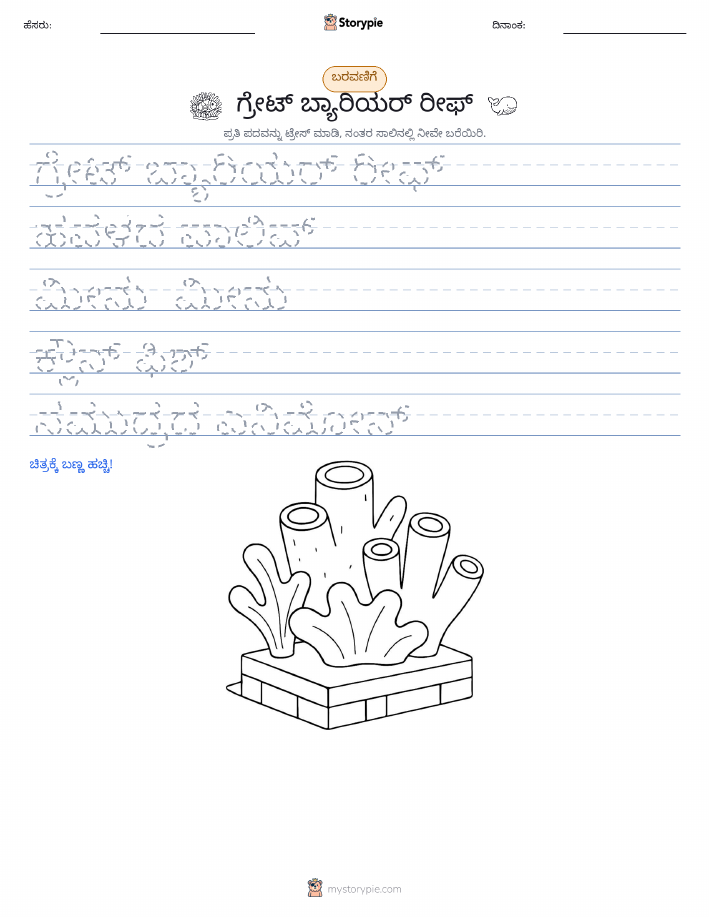 ಹೆಸರು:
Storypie
ದಿನಾಂಕ:
ಬರವಣಿಗೆ
ಗ್ರೇಟ್ ಬ್ಯಾರಿಯರ್ ರೀಫ್
ಪ್ರತಿ ಪದವನ್ನು ಟ್ರೇಸ್ ಮಾಡಿ, ನಂತರ ಸಾಲಿನಲ್ಲಿ ನೀವೇ ಬರೆಯಿರಿ.
ಗ್ರೇಟ್ ಬ್ಯಾರಿಯರ್ ರೀಫ್
ಹವಳದ ಪಾಲಿಪ್
ಮೀನು ಮೀನು
ಕ್ಲೌನ್ ಫಿಶ್
ಸಮುದ್ರದ ಎನಿಮೋನ್
ಚಿತ್ರಕ್ಕೆ ಬಣ್ಣ ಹಚ್ಚಿ!
mystorypie.com